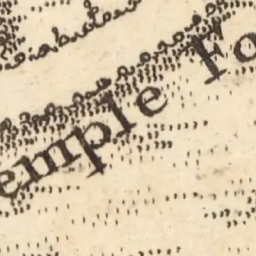 emple Fo